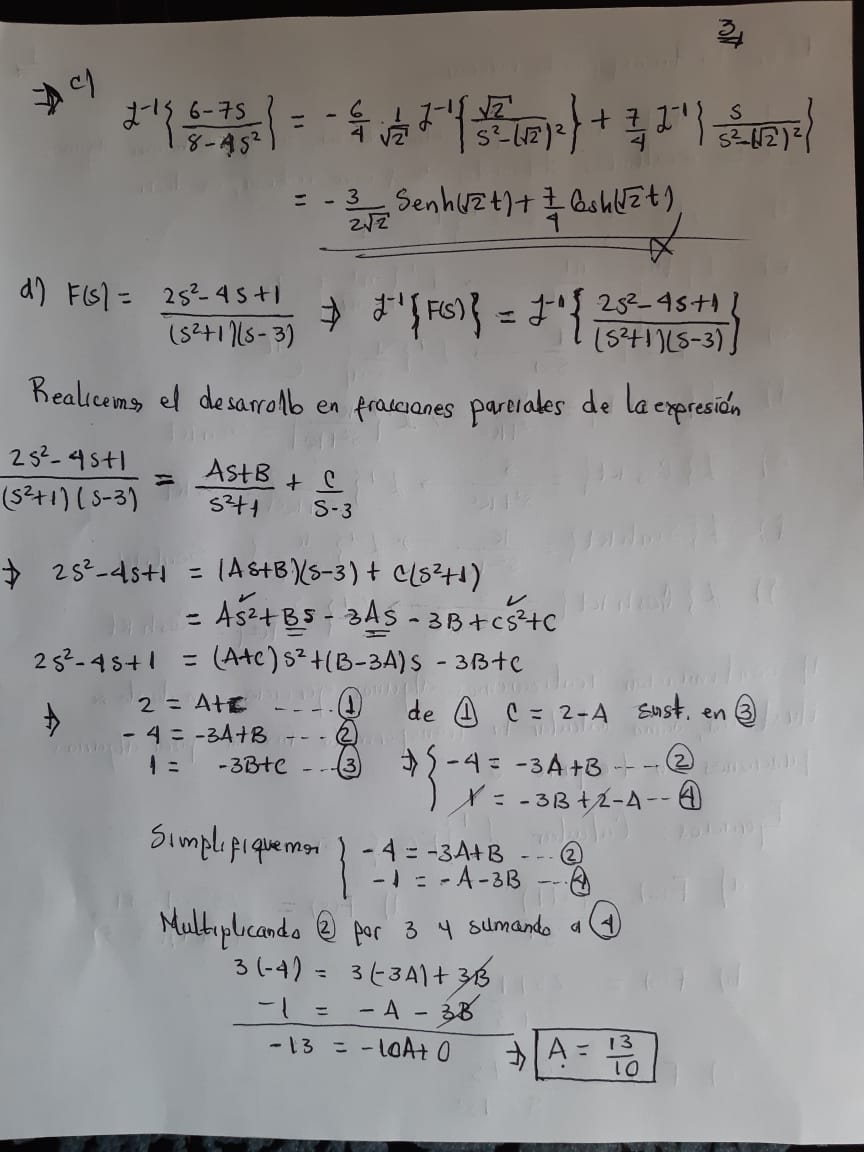 3
⇒ c)
L⁻¹{ (6-7s)/(8-4s²) } = - 6/4 1/√2 L⁻¹{ √2/(s²-(√2)²) } + 7/4 L⁻¹{ s/(s²-(√2)²) }
= - 3/(2√2) Senh(√2t) + 7/4 Cosh(√2t)
d) F(s) = (2s²-4s+1)/((s²+1)(s-3)) ⇒ L⁻¹{F(s)} = L⁻¹{ (2s²-4s+1)/((s²+1)(s-3)) }
Realicemos el desarrollo en fracciones parciales de la expresión
(2s²-4s+1)/((s²+1)(s-3)) = (As+B)/(s²+1) + C/(s-3)
⇒ 2s²-4s+1 = (As+B)(s-3) + C(s²+1)
= As²+Bs - 3As - 3B + Cs²+C
2s²-4s+1 = (A+C)s²+(B-3A)s - 3B+C
⇒ 2 = A+C ----① de ① C = 2-A sust. en ③
-4 = -3A+B ---② ⇒ { -4 = -3A+B ----②
1 = -3B+C ---③ 1 = -3B+2-A --④
Simplifiquemos { -4 = -3A+B ---②
-1 = -A-3B ---④
Multiplicando ② por 3 y sumando a ④
3(-4) = 3(-3A)+3B
-1 = -A - 3B
-13 = -10A+0 ⇒ A = 13/10